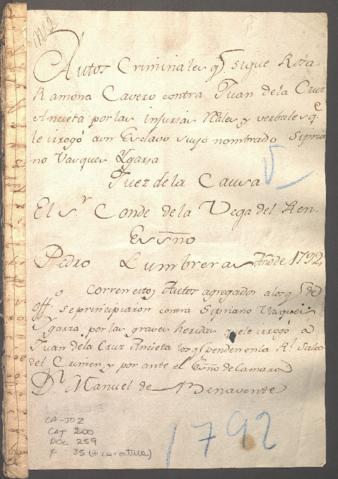 1792
Autos Criminales q.e sigue Rosa
Ramona Cavero contra Juan de la Cruz
Ancieta por las injurias Rales y verbales q.e
le irrogó a un Esclavo suyo nombrado Sipria
no Vasques Ygarza
Juez de la Causa
El S.r Conde de la Vega del Ren
Ess.no
Pedro Lumbreras Año de 1792
Corren estos Autos agregados a los q.e de
off.o se principiaron contra Sipriano Vasques
Ygarza por las graves heridas q.e le irrogó a
Juan de la Cruz Ancieta los q.e penden en la R.l Sala
del Crimen, y por ante el Ess.no de Camara
D.n Manuel de Benavente
CA-JO2
CAJ 200
DOC 259
F 35 (+ caratula)
1792